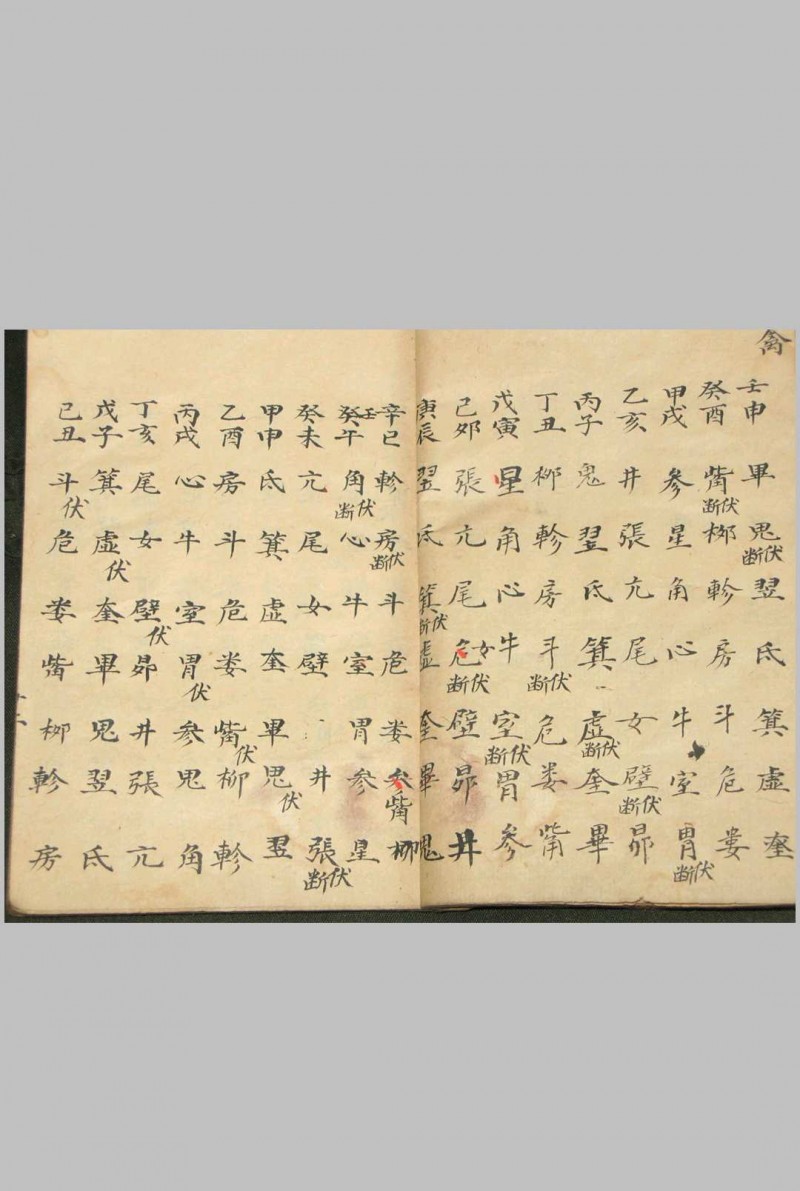 禽
壬申 畢 鬼 断伏 翌 氐 箕 虛 奎
癸酉 觜 断伏 柳 軫 房 斗 危 婁
甲戌 參 星 角 心 牛 室 胃 断伏
乙亥 井 張 亢 尾 女 壁 断伏 昴
丙子 鬼 翌 氐 箕 虛 断伏 奎 畢
丁丑 柳 軫 房 斗 断伏 危 婁 觜
戊寅 星 角 心 牛 室 断伏 胃 參
己卯 張 亢 尾 危 女 断伏 壁 昴 井
庚辰 翌 氐 箕 断伏 虛 奎 畢 鬼
辛巳 軫 房 断伏 斗 危 婁 参 觜 柳
癸壬午 角 断伏 心 牛 室 胃 参 星
癸未 亢 尾 女 壁 井 張 断伏
甲申 氐 箕 虛 奎 畢 鬼 伏 翌
乙酉 房 斗 危 婁 觜 伏 柳 軫
丙戌 心 牛 室 胃 伏 参 鬼 角
丁亥 尾 女 壁 伏 昴 井 張 亢
戊子 箕 虛 伏 奎 畢 鬼 翌 氐
己丑 斗 伏 危 婁 觜 柳 軫 房